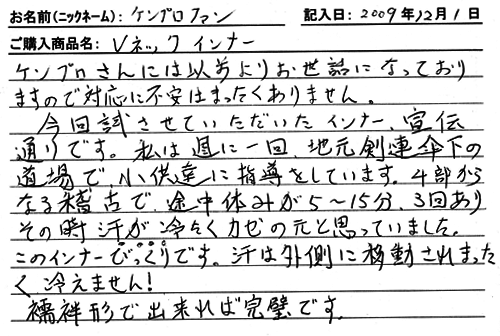 お名前(ニックネーム): ケンプロファン 記入日: 2009年12月1日
ご購入商品名: Vネックインナー
ケンプロさんには以前よりお世話になっており
ますので対応に不安はまったくありません。
今回試させていただいたインナー、宣伝
通りです。私は週に一回、地元剣連傘下の
道場で、小供達に指導をしています。4部から
なる稽古で、途中休みが5~15分、3回あり
その時汗が冷たくカゼの元と思っていました。
このインナーびっくりです。汗は外側に移動されまった
く冷えません!
襦袢形で出来れば完璧です。